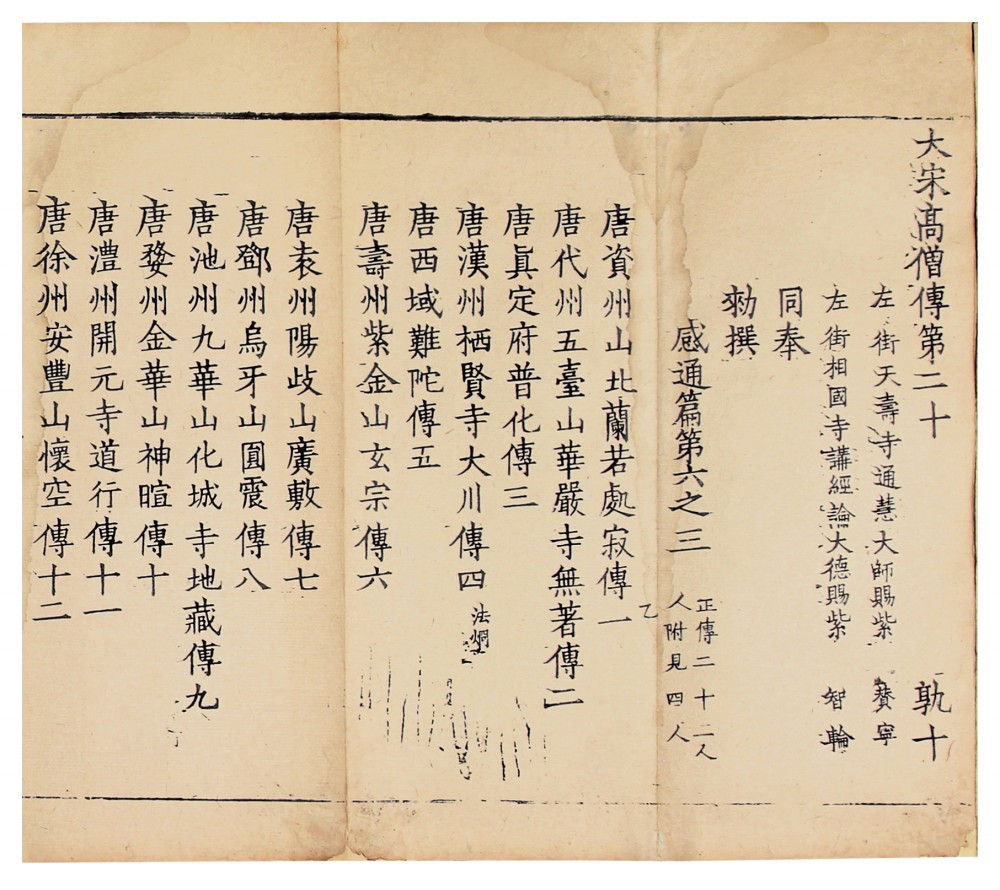 大宋高僧傳第二十 孰十
左街天壽寺通慧大師賜紫 贊寧
左街相國寺講經論大德賜紫 智輪
同奉
勑撰
感通篇第六之三 正傳二十二人
人附見四人
乙
唐資州山北蘭若處寂傳一
唐代州五臺山華嚴寺無著傳二
唐眞定府普化傳三
唐漢州栖賢寺大川傳四 法烱
唐西域難陀傳五
唐壽州紫金山玄宗傳六
唐袁州陽歧山廣敷傳七
唐鄧州烏牙山圓震傳八
唐池州九華山化城寺地藏傳九
唐婺州金華山神暄傳十
唐澧州開元寺道行傳十一
唐徐州安豐山懷空傳十二